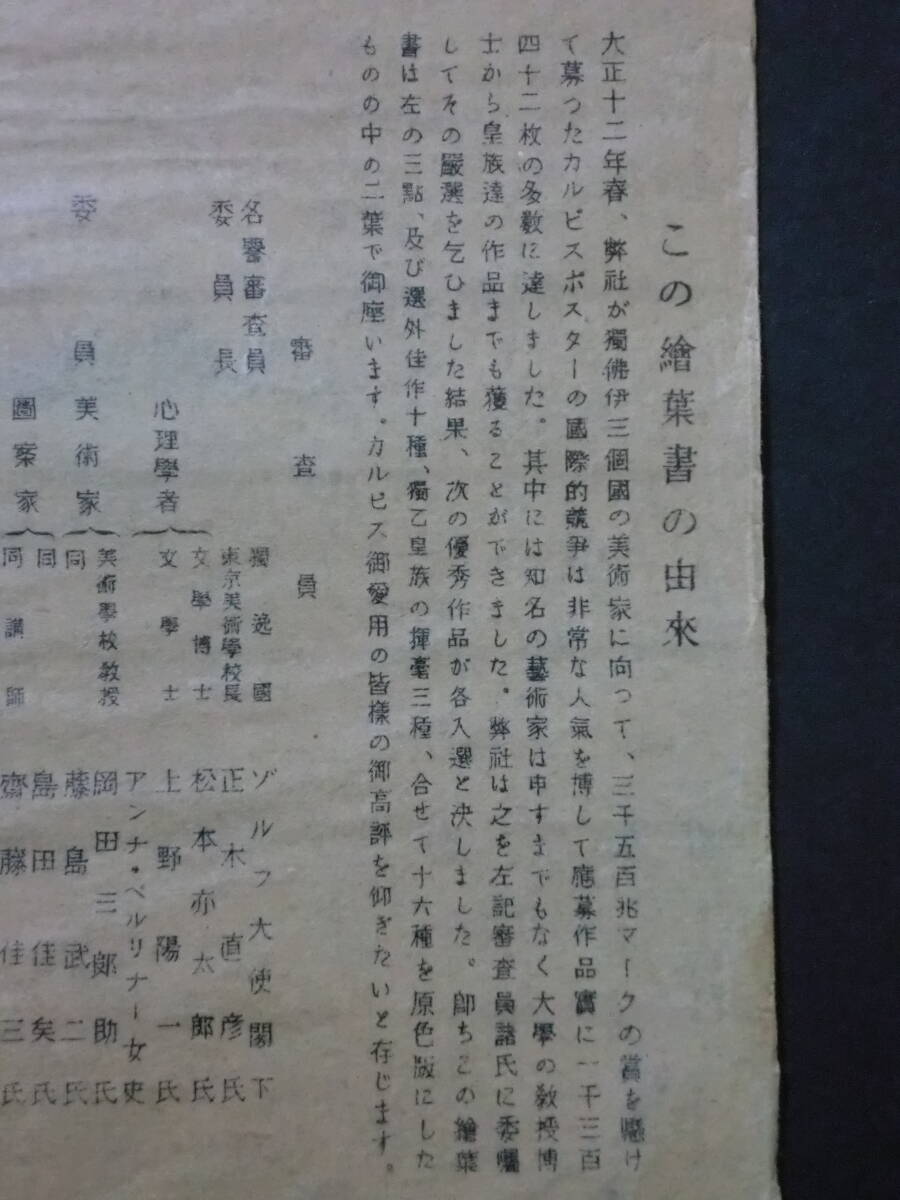 この繪葉書の由來
大正十二年春、弊社が獨佛伊三個國の美術家に向つて、三千五百兆マークの賞を懸け
て募つたカルピスポスターの國際的競爭は非常な人氣を博して應募作品實に一千三百
四十二枚の多數に達しました。其中には知名の藝術家は申すまでもなく大學の敎授博
士から皇族達の作品までも獲ることができました。弊社は之を左記審査員諸氏に委囑
してその嚴選を乞ひました結果、次の優秀作品が各入選と決しました。卽ちこの繪葉
書は左の三點、及び選外佳作十種、獨乙皇族の揮毫三種、合せて十六種を原色版にした
ものの中の二葉で御座います。カルピス御愛用の皆樣の御高評を仰ぎたいと存じます。
審査員
名譽審査員 獨逸國 ゾルフ大使閣下
委員長 東京美術學校長 正木直彦氏
心理學者 文學博士 松本亦太郎氏
文學士 上野陽一氏
アンナ・ベルリナー女史
委員 美術家 美術學校敎授 岡田三郎助氏
同 藤島武二氏
圖案家 同 島田佳矣氏
同講師 齋藤佳三氏